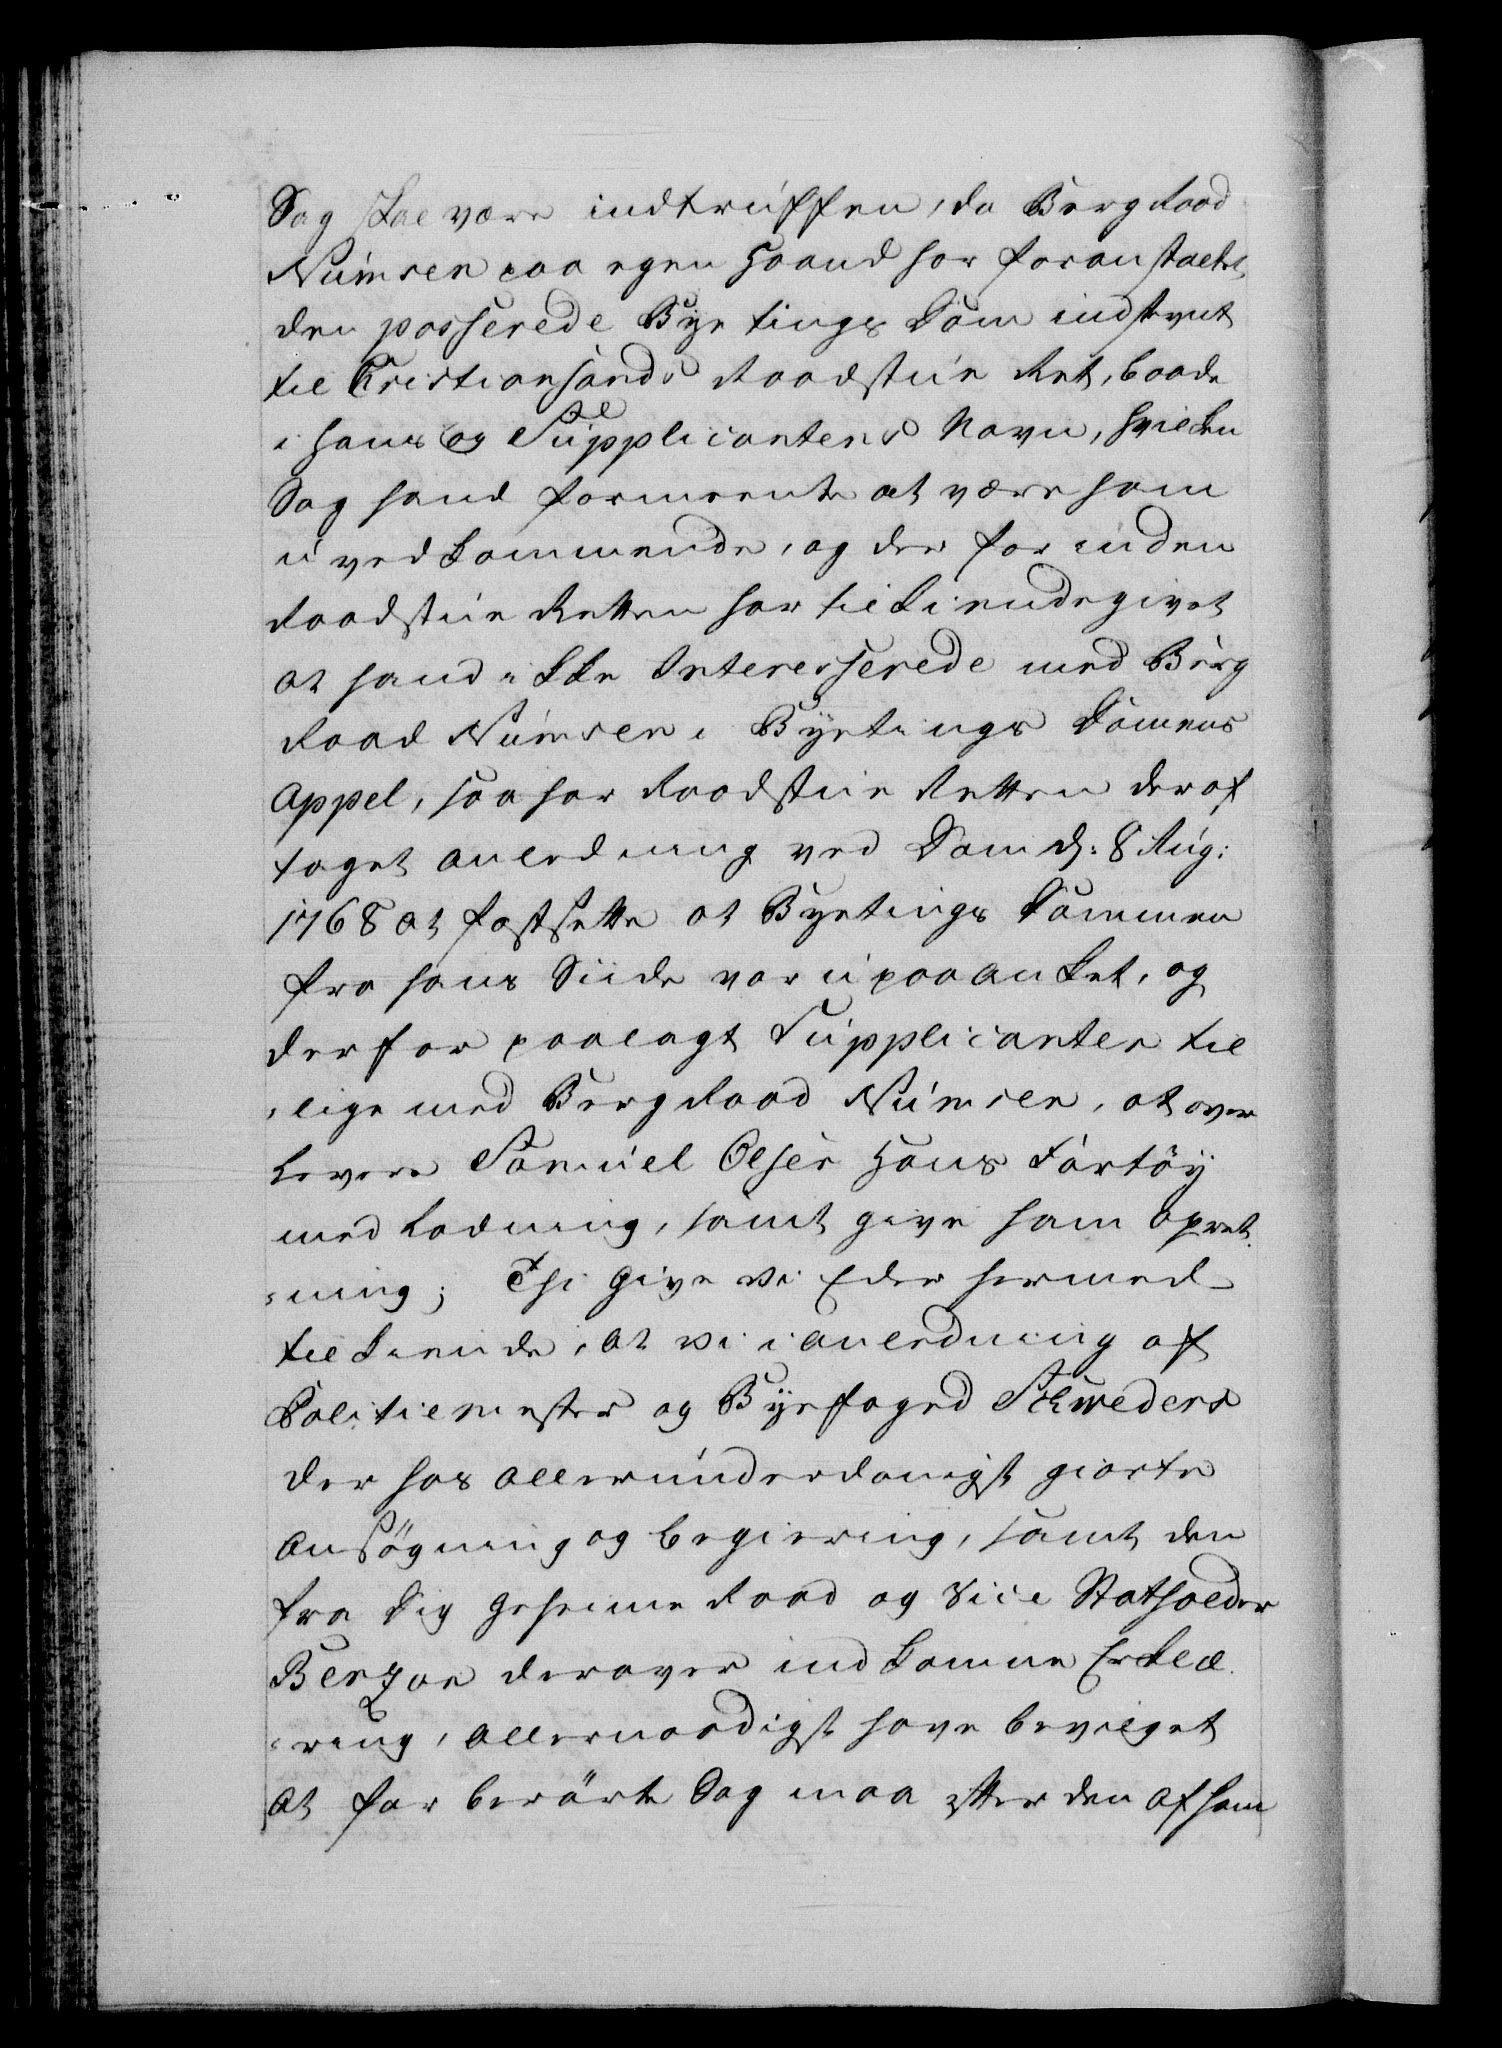 Sag skal være indtruffen, da Berg Raad
Numsen paa egen Haand har foranstaelt
den passerede Bye tings Dom indstevnt
til Christiansands Raadstue Ret, baade
i hans og Supplicantens Navn, hvilken
Sag hand formeente at være ham
uvedkommende, og der for inden
Raadstue Retten har tilkiendegivet
at hand ikke Interesserede med Berg
Raad Numsen i Byetings Dommens
Appel, saa har Raadstue Retten deraf
taget anledning ved Dom d: 8 Aug:
1768 at fastsette at Byetings Dommen
fra hans Siide var upaaanket, og
derfor paalagt Supplicanten til
lige med Berg Raad Numsen, at over
levere Samuel Olsen Hans Fartöy
med Ladning, samt give ham opret
ning; Thi Give vi Eder hermed
tilkiende, at vi i anledning af
Politiemester og Byefoged Schweders
der hos allerunderdanigst giorte
Ansögning og begiering, samt den
fra Dig Geheime Raad og Vice Statholder
Benzon derover indkomne Erklæ
ring, allernaadigst have bevilget
at for berörte Sag maa efter den af ham